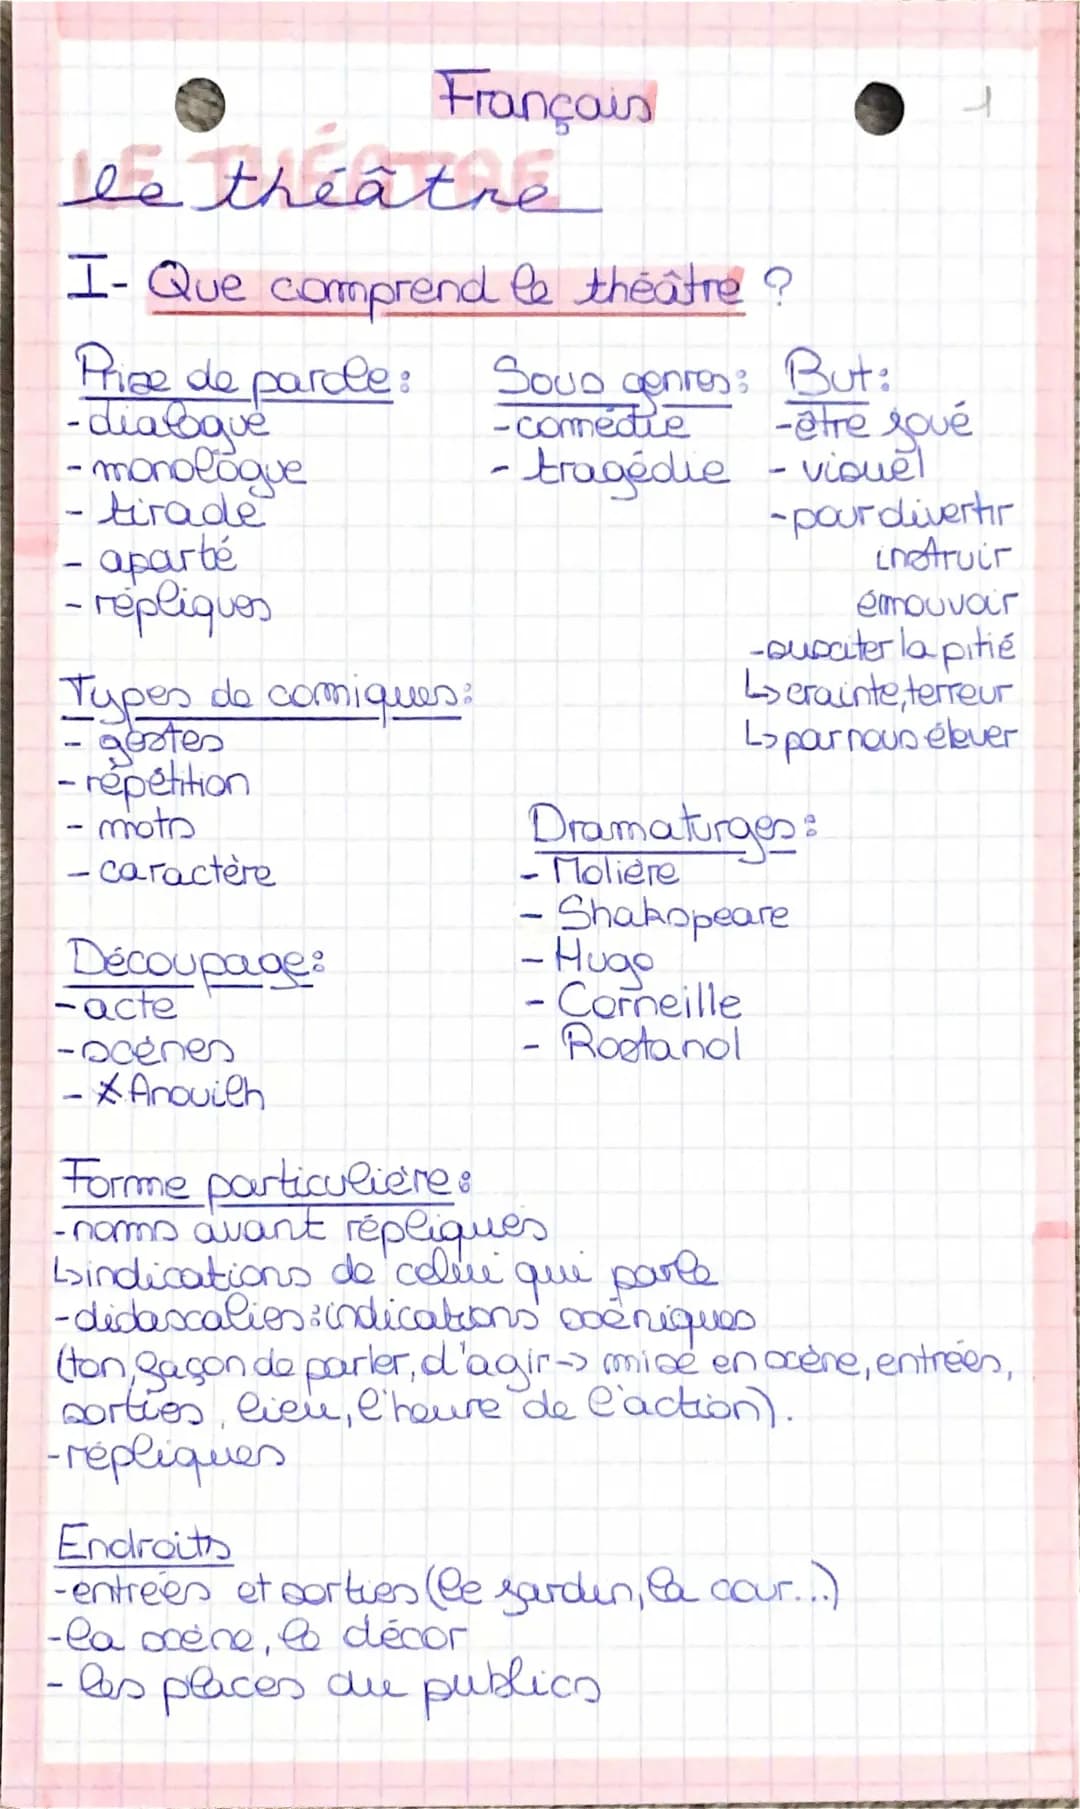 Français
1
le théâtre
I- Que comprend le théâtre ?
Prise de parole:
-dialogue
-monologue
- tirade
- aparté
- répliques
Sous genres:
-comédie
- tragédie
But:
-être joué
- visuel
-pour divertir
instruir
émouvoir
-susciter la pitié
↳ crainte, terreur
↳ pour nous élever
Types de comiques:
- gestes
- répétition
- mots
- caractère
Dramaturges:
- Molière
- Shakspeare
- Hugo
- Corneille
- Rostanol
Découpage:
-acte
-scènes
- * Anouilh
Forme particulière:
-noms avant répliques
↳indications de celui qui parle
-didascalies: indications scéniques
(ton, façon de parler, d'agir-> mise en scène, entrées,
sorties, lieu, l'heure de l'action).
-répliques
Endroits
-entrées et sorties (le jardin, la cour...)
-la scène, le décor
- les places du publics